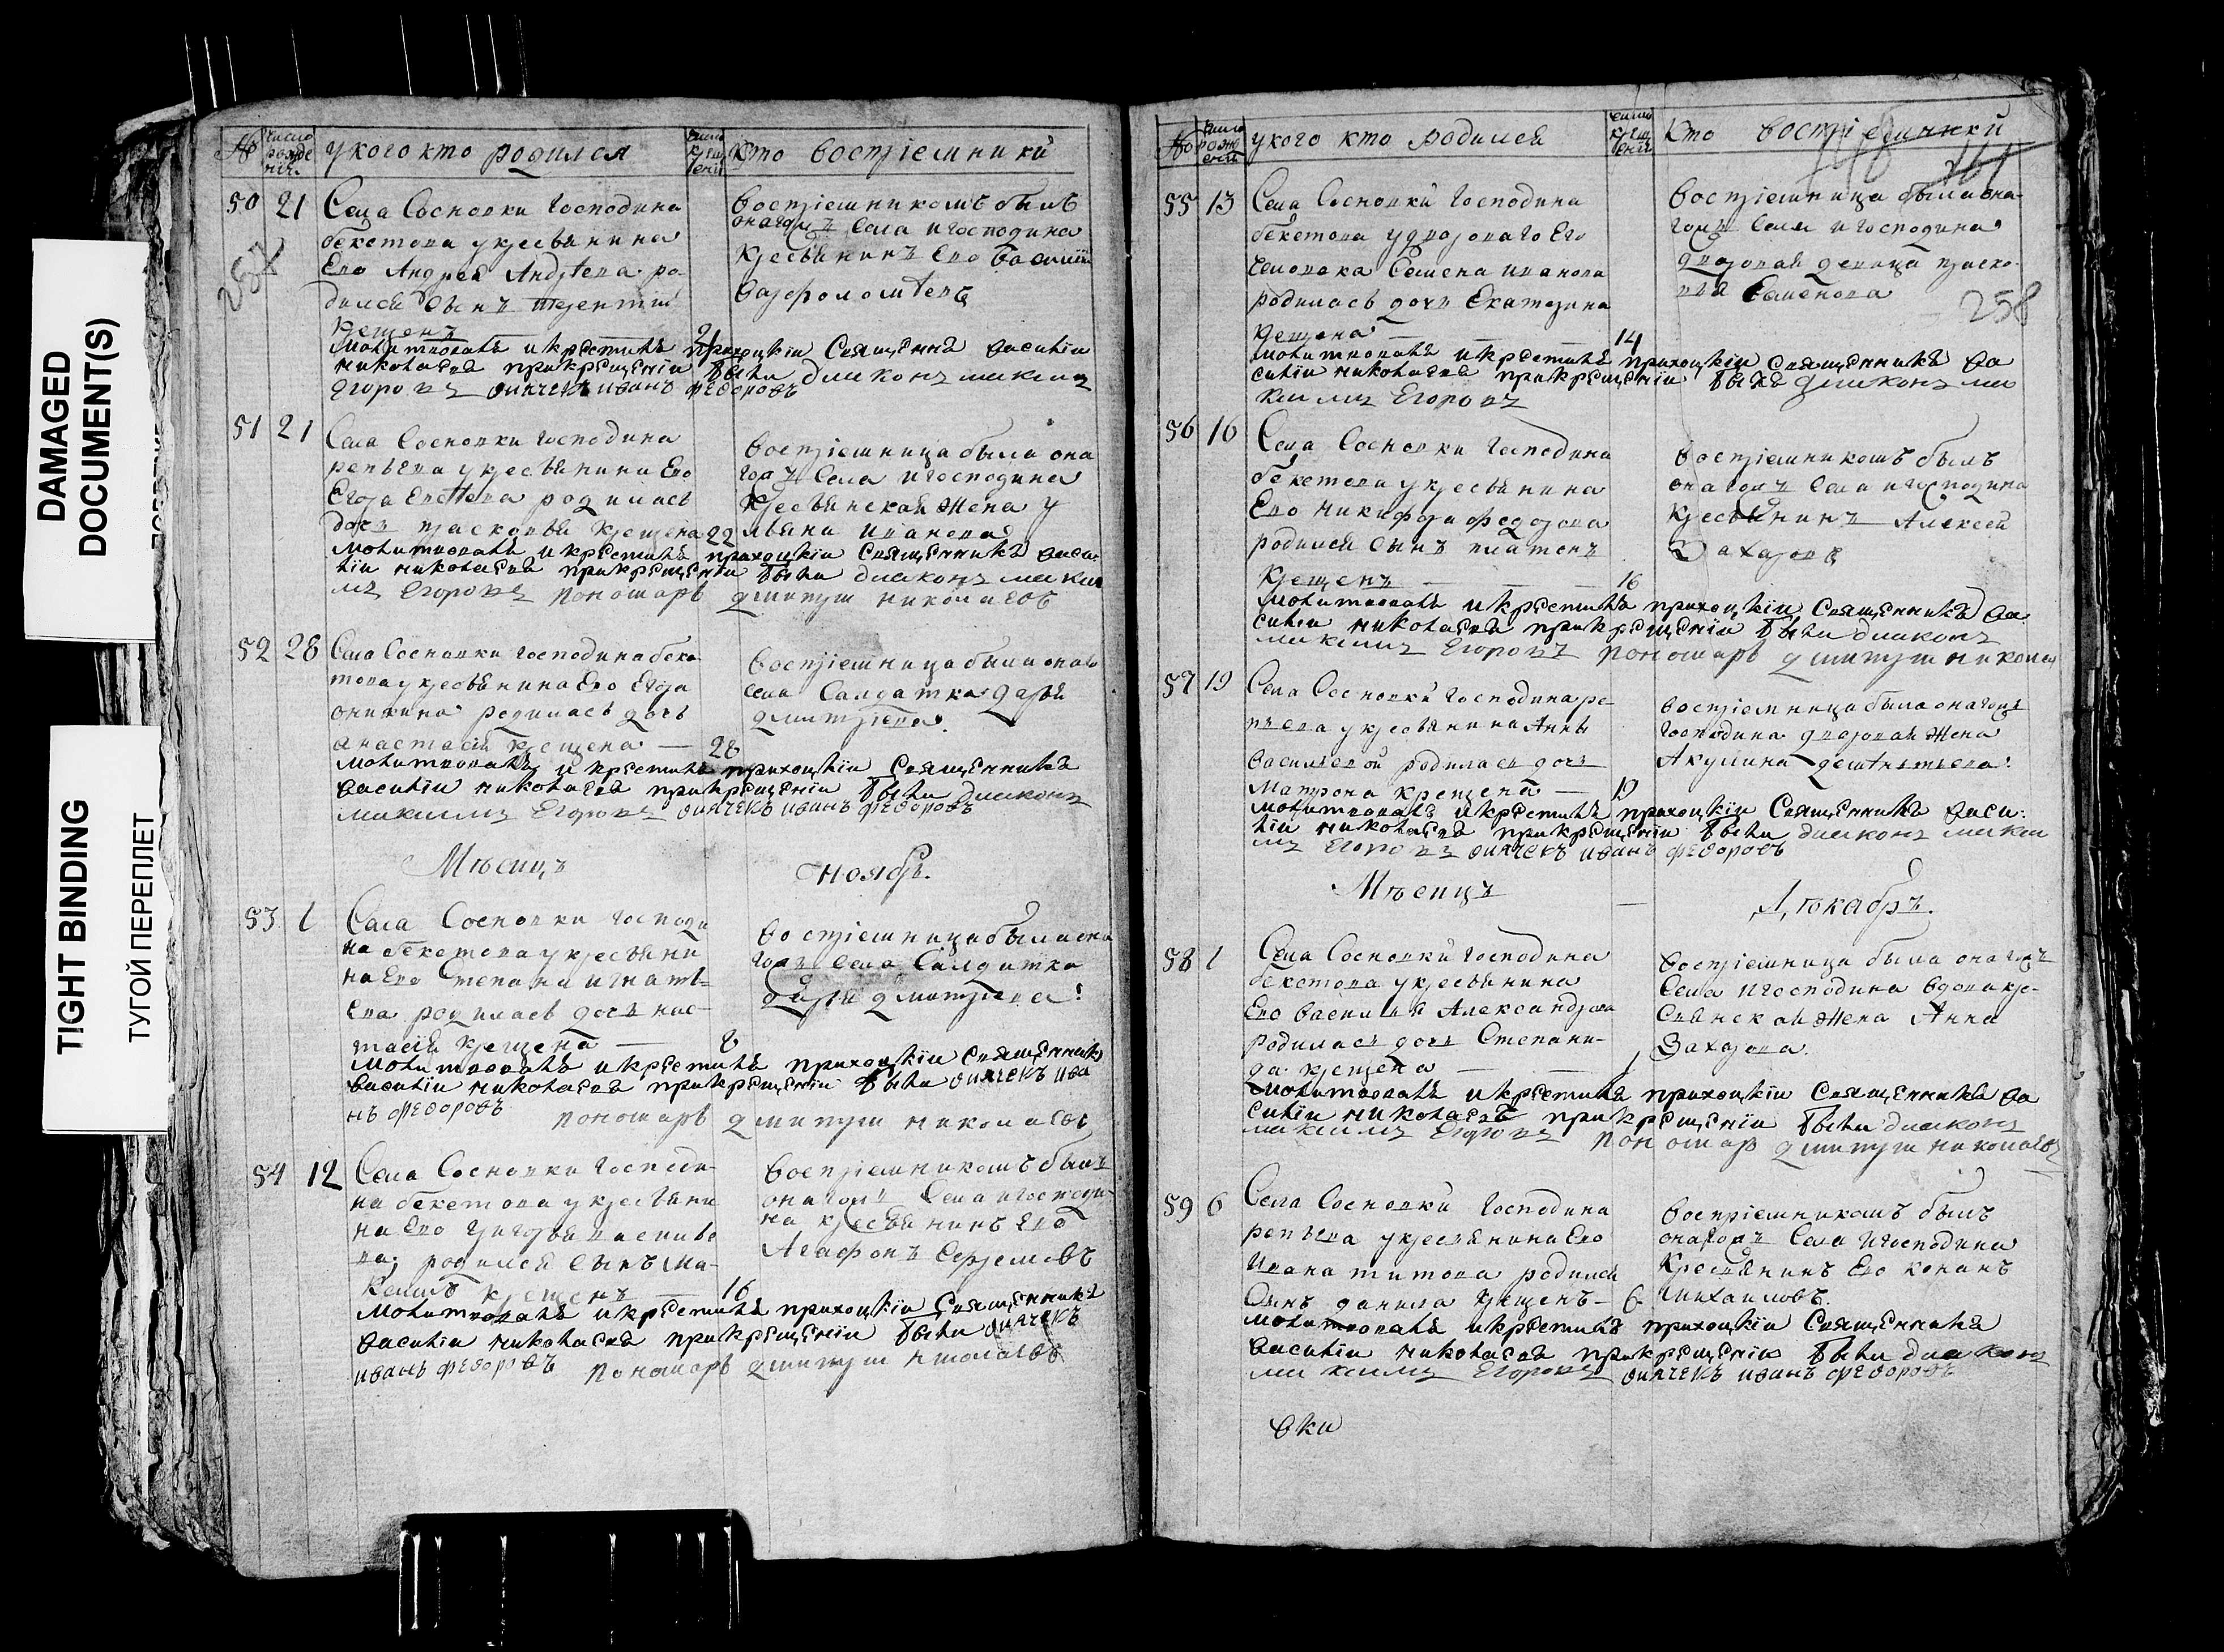 DAMAGED
DOCUMENT(S)
TIGHT BINDING
ТУГОЙ ПЕРЕПЛЕТ
№ число рожде нія
у кого кто родился
число крщ енія
кто воспріемники
50 21 Села Сосновки Господина
бекетова укресьянина
Ево Андрея Андреева ро
дился сынъ терентий
крещенъ 21
воспріемникомъ былъ
онагожъ села игосподина
кресьянинъ Ево василий
варфоломеевъ
молитвовалъ икрестилъ приходцкіи Священникъ василіи
николаевъ прикрещеніи были диаконъ максимъ
Егоровъ диячекъ иванъ федоровъ
257
51 21 Села Сосновки господина
репьева укресьянина Ево
Егора Евсеева родилась
дочь прасковья крещена 22
воспріемница была она
гожъ села игосподина
кресьянская жена у
льяна иванова
молитвовалъ икрестилъ приходцкіи Священникъ васи
ліи николаевъ прикрещеніи были диаконъ макси
мъ Егоровъ пономарь дмитри николаевъ
52 28 Села Сосновки господина беке
това укресьянина Ево Егора
оникина родилась дочь
анастасія крещена — 28
воспріемница была онаго
села Салдатка дарья
дмитріева
молитвовалъ икрестилъ приходцкіи Священникъ
василіи николаевъ прикрещеніи были диаконъ
максимъ Егоровъ диячекъ иванъ федоровъ
Мѣсяцъ ноябрь.
53 1 Села Сосновки господи
на бекетова укресьяни
на Ево Степана игнать
ева родилась дочь нас
тасія крещена — 8
воспріемница была она
гожъ села Салдатка
дарья дмитріева
молитвовалъ икрестилъ приходцкіи Священникъ
василіи николаевъ прикрещеніи были диячекъ ива
нъ федоровъ пономарь дмитри николаевъ
54 12 Села Сосновки Господи
на бекетова укресьяни
на Ево григорья василье
ва, родился сынъ ма
ксимъ крещенъ — 16
воспріемникомъ былъ
онагожъ Села игосподи
на кресьянинъ Ево
Агафонъ Ефремовъ
молитвовалъ икрестилъ приходцкіи Священникъ
василіи николаевъ прикрещеніи были диячекъ
иванъ федоровъ пономарь дмитри николаевъ
№ число рожд енія
у кого кто родился
число крещ енія
кто воспріемники
258
55 13 Села Сосновки Господина
бекетова удворового Ево
человека Семена иванова
родилась дочь Екатерина
крещена — 14
воспріемница была она
гожъ села игосподина
дворовая девица праско
вья Семенова
молитвовалъ икрестилъ приходцкіи Священникъ ва
силіи николаевъ прикрещеніи былъ диаконъ ма
ксимъ Егоровъ
56 16 Села Сосновки Господина
бекетова укресьянина
Ево никифора федорова
родился сынъ платонъ
крещенъ — 16
воспріемникомъ былъ
онагожъ села игосподина
кресьянинъ Алексей
Захаровъ
молитвовалъ икрестилъ приходцкіи Священникъ ва
силіи николаевъ прикрещеніи были диаконъ
максимъ Егоровъ пономарь дмитри николаев
57 19 Села Сосновки господина ре
пьева укресьянина Анны
васильевой родилась дочь
матрона крещена — 19
воспріемница была онагожъ
господина дворовая жена
Акулина деметьева
молитвовалъ икрестилъ приходцкіи Священникъ васи
ліи николаевъ прикрещеніи были диаконъ макси
мъ Егоровъ диячекъ иванъ федоровъ
Мѣсяцъ — Декабрь.
58 1 Села Сосновки господина
бекетова укресьянина
Ево василия Александрова
родилась дочь Степани
да крещена — 1
воспріемница была онагожъ
Села игосподина вдова кре
стьянская жена Анна
Захарова.
молитвовалъ икрестилъ приходцкіи Священникъ ва
силіи николаевъ прикрещеніи были диаконъ
максимъ Егоровъ пономарь дмитри николаевъ
59 6 Села Сосновки Господина
репьева укрестьянина Ево
Ивана титова родился
Сынъ данила крещенъ — 6
воспріемникомъ былъ
онагожъ Села игосподина
крестьянинъ Ево конанъ
михаиловъ.
молитвовалъ икрестилъ приходцкіи Священникъ
василіи николаевъ прикрещеніи были диаконъ
максимъ Егоровъ диячекъ иванъ федоровъ
вки